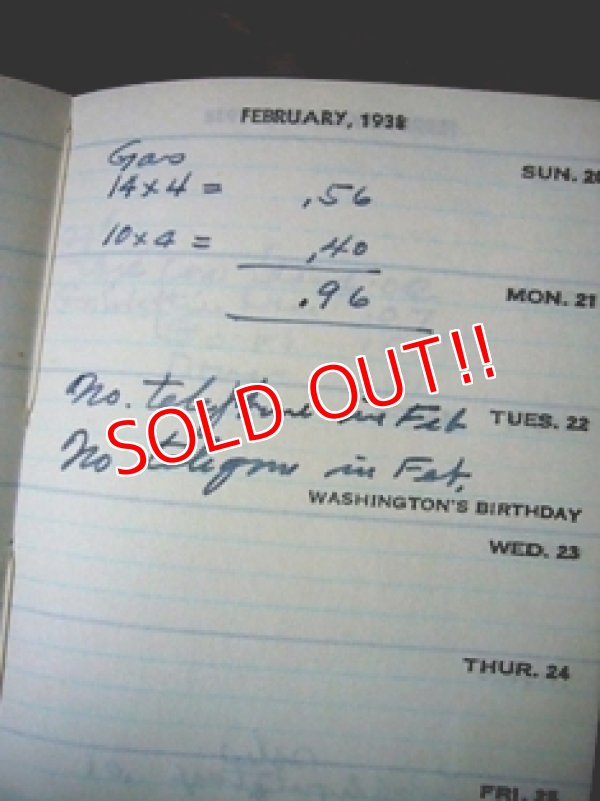 FEBRUARY, 1938
Gas
SUN. 20
14 x 4 = .56
10 x 4 = .40
.96
MON. 21
No. telephone in Feb
TUES. 22
No in Feb.
WASHINGTON'S BIRTHDAY
WED. 23
THUR. 24
FRI. 25
SOLD OUT!!